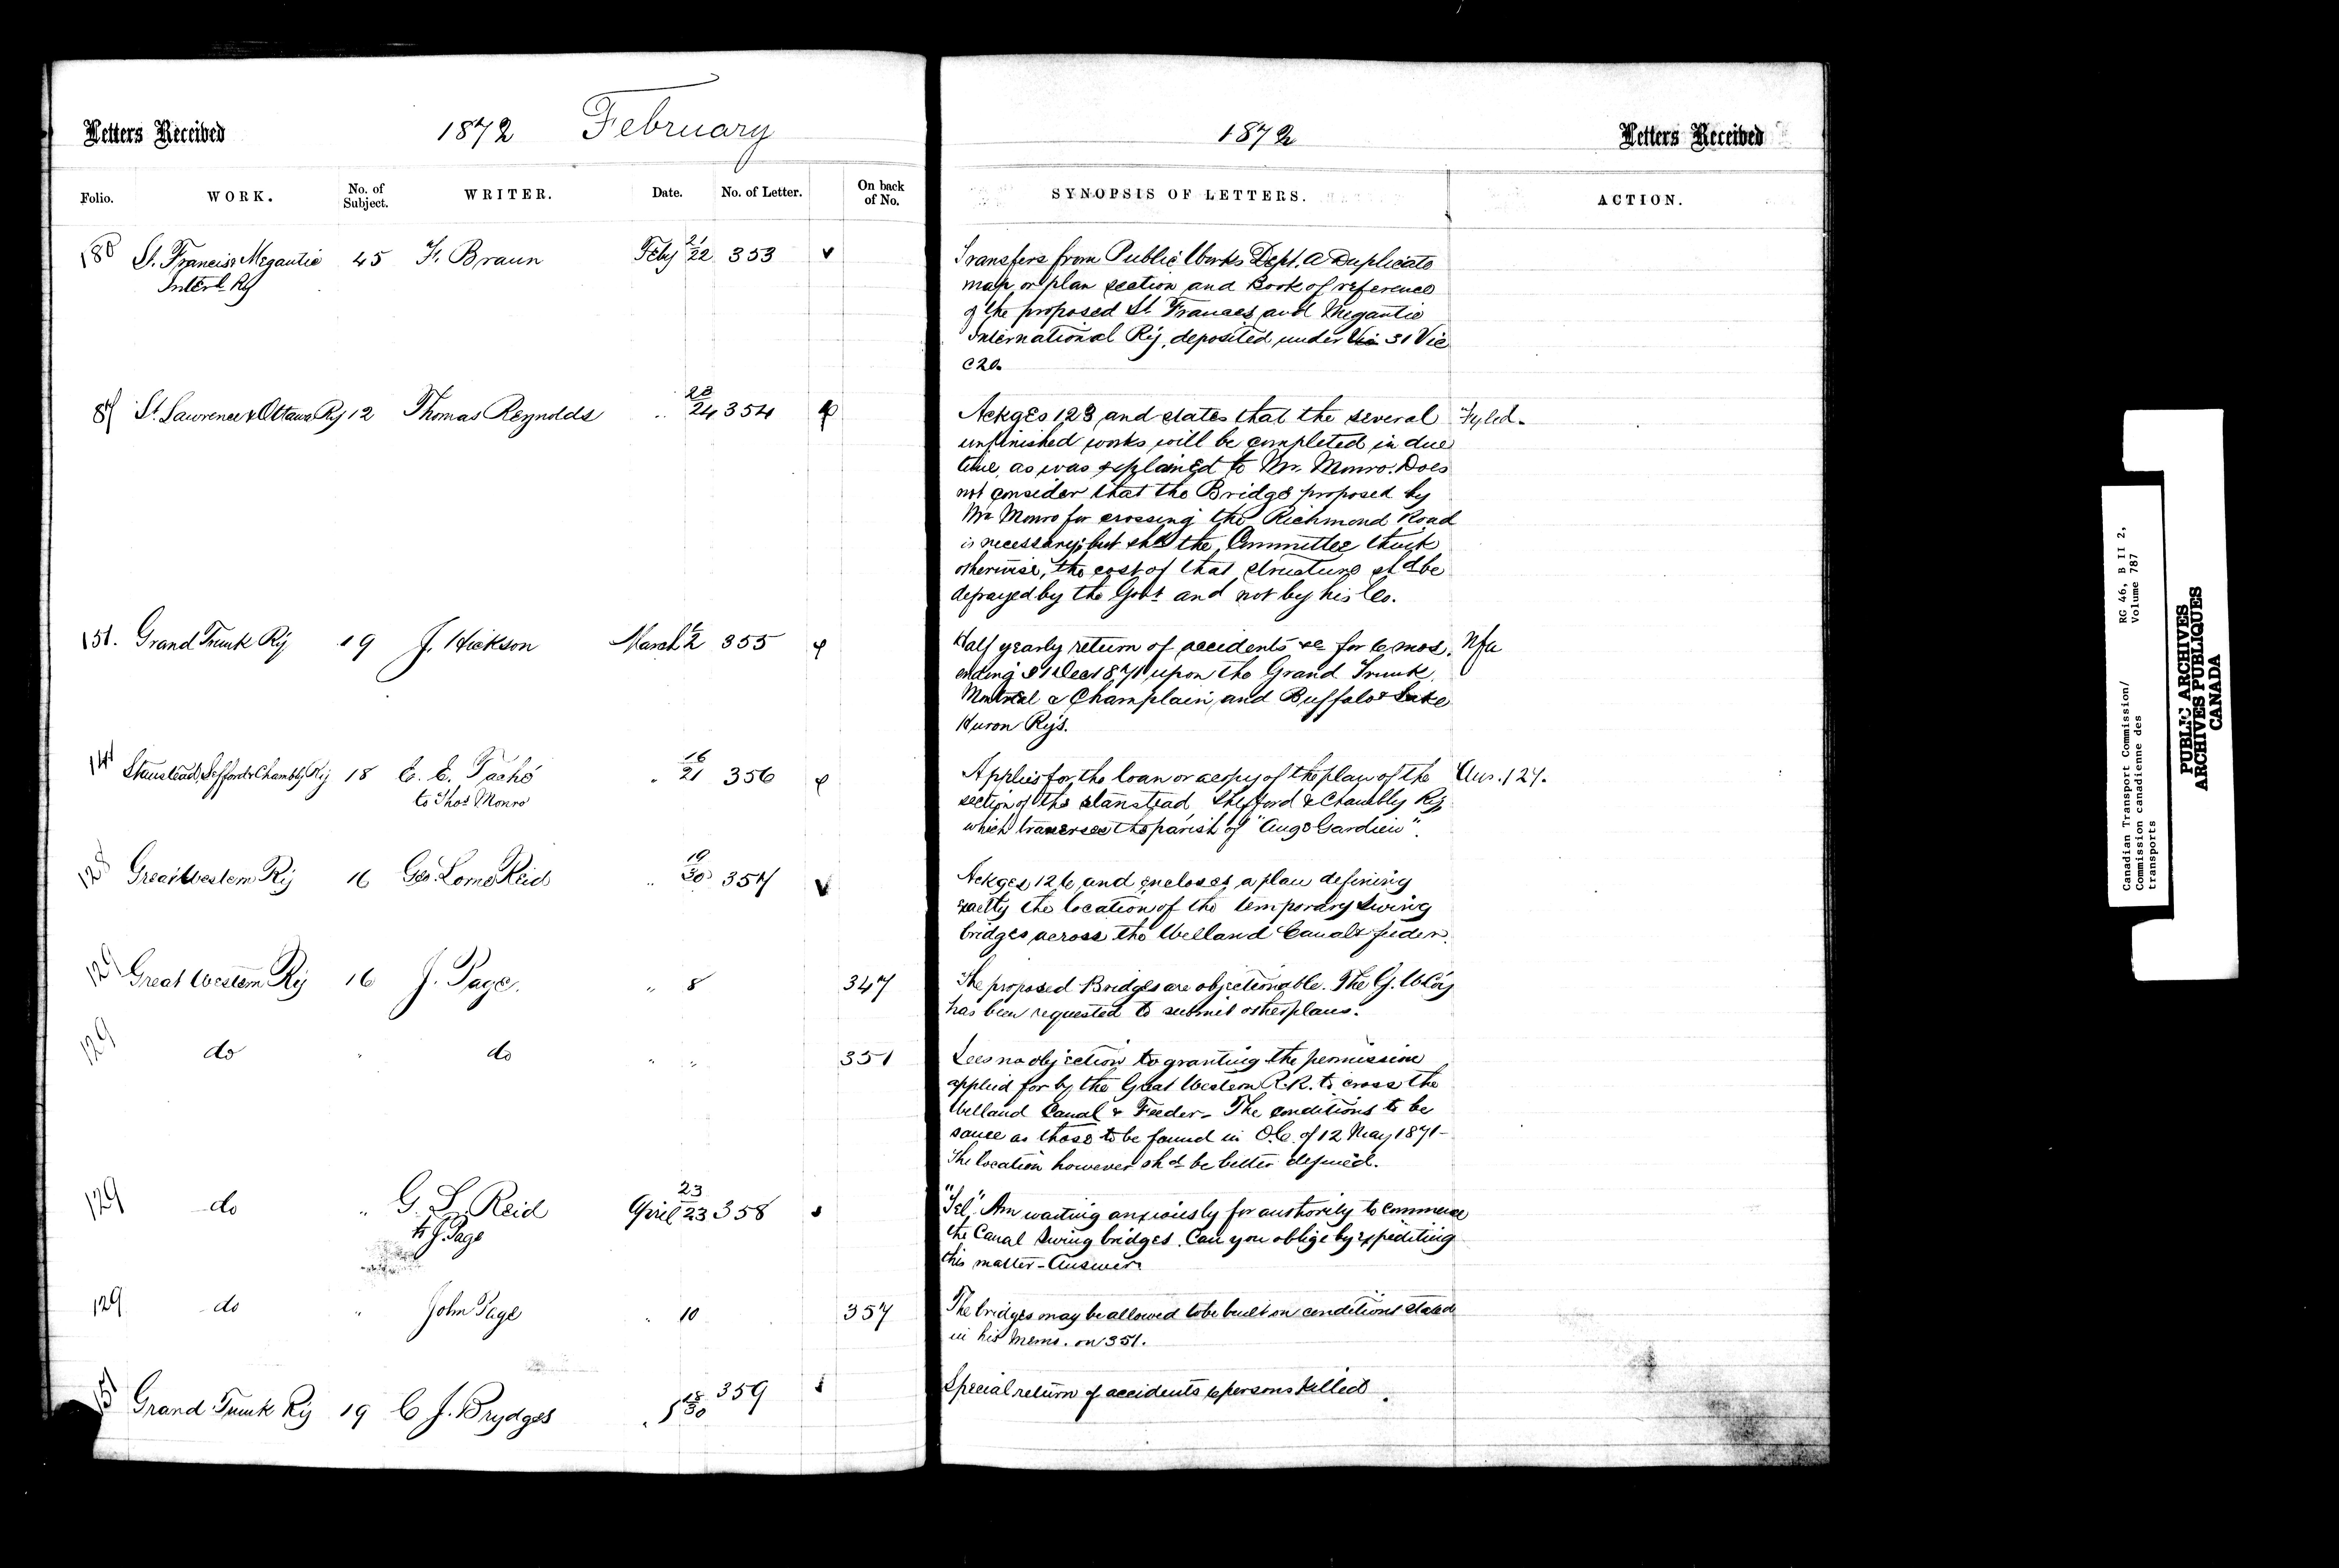 Letters Received 1872 February
Folio. WORK. No. of Subject. WRITER. Date. No. of Letter. On back of No.
180 St. Francis & Megantic 45 F. Braun Feby 21/22 353 v
Interl. Ry
87 St. Lawrence & Ottawa Ry 12 Thomas Reynolds " 23/24 354
151. Grand Trunk Ry 19 J. Hickson March 1/2 355
141 Stanstead, Shefford & Chambly Ry 18 E. E. Taché " 16/21 356
to Thos Monro
128 Great Western Ry 16 Geo. Lorne Reid " 19/30 357 v
129 Great Western Ry 16 J. Page. " 8 347
129 do " do " " 351
129 do " G. L. Reid April 23/23 358
to J. Page
129 do " John Page " 10 357
151 Grand Trunk Ry 19 C. J. Brydges " 18/30 359
1872 Letters Received
SYNOPSIS OF LETTERS. ACTION.
Transfers from Public Works Dept. a Duplicate
map or plan section and Book of reference
of the proposed St. Frances and Megantic
International Ry, deposited under Vic 31 Vic
C20.
Ackges 123 and states that the several Fyled.
unfinished works will be completed in due
time, as was explained to Mr. Monro. Does
not consider that the Bridge proposed by
Mr. Monro for crossing the Richmond Road
is necessary; but shd the Committee think
otherwise, the cost of that structure shd be
defrayed by the Govt and not by his Co.
Half yearly return of accidents &c for 6 mos. Nfa
ending 31 Dec 1871 upon the Grand Trunk,
Montreal & Champlain and Buffalo & Lake
Huron Rys.
Applies for the loan or a copy of the plan of the Ans. 127.
section of the Stanstead, Shefford & Chambly Ry
which traverses the parish of "Ange Gardien".
Ackges 126 and encloses a plan defining
exactly the location of the temporary Swing
bridges across the Welland Canal & feeder.
The proposed Bridges are objectionable. The G. W. Coy
has been requested to submit other plans.
Sees no objection to granting the permission
applied for by the Great Western R.R. to cross the
Welland Canal & Feeder - The conditions to be
same as those to be found in O.C. of 12 May 1871 -
The location however shd be better defined.
"Tel". Am waiting anxiously for authority to commence
the Canal Swing bridges. Can you oblige by expediting
this matter - Answer.
The bridges may be allowed to be built on conditions stated
in his Memo. on 351.
Special return of accidents 6 persons killed.
Canadian Transport Commission/
Commission canadienne des
transports
RG 46, B II 2,
Volume 787
PUBLIC ARCHIVES
ARCHIVES PUBLIQUES
CANADA